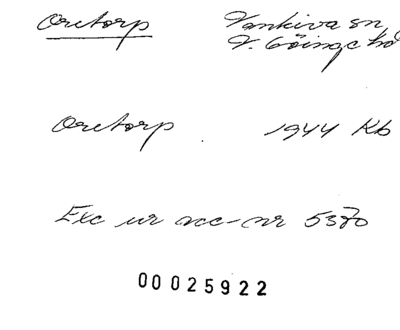 Oretorp Vankiva sn
V. Göinge hd
Oretorp 1944 Kb
Exc ur acc-nr 5370
00025922